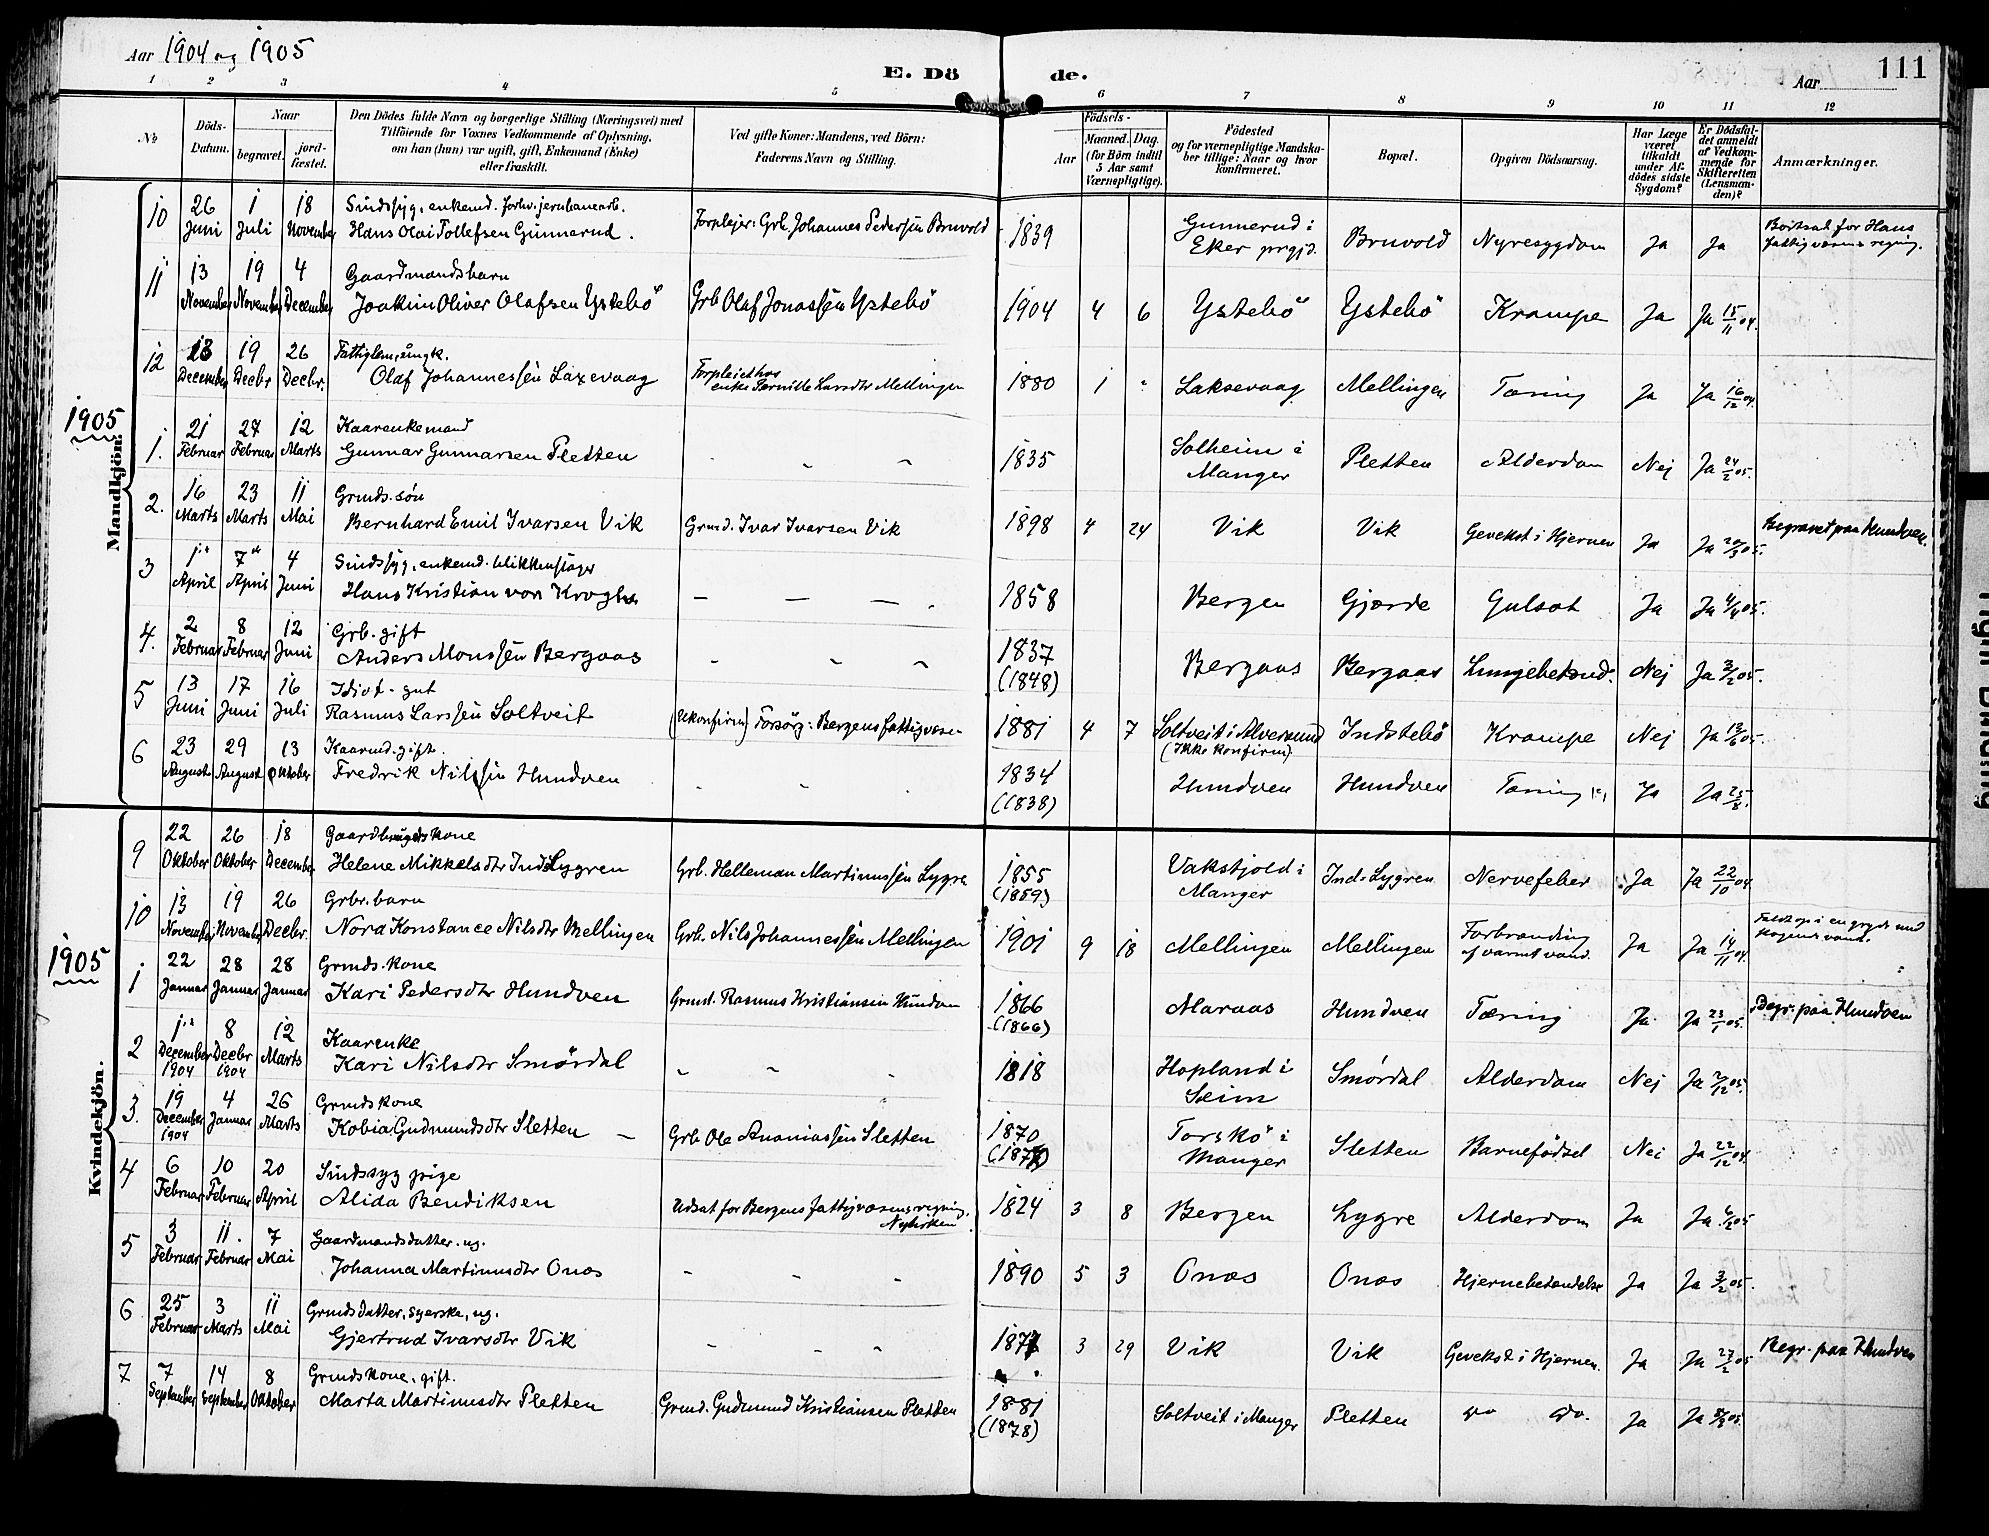 Aar 1904 og 1905
E. Dö de.
Aar 111
1 2 3 4 5 6 7 8 9 10 11 12
No
Döds-Datum.
Naar
begravet.
jord-fæstet.
Den Dödes fulde Navn og borgerlige Stilling (Næringsvei) med
Tilföiende for Voxnes Vedkommende af Oplysning,
om han (hun) var ugift, gift, Enkemand (Enke)
eller fraskilt.
Ved gifte Koner: Mandens, ved Börn:
Faderens Navn og Stilling.
Födsels-
Aar
Maaned. Dag.
(for Börn indtil
5 Aar samt
Værnepligtige).
Födested
og for værnepligtige Mandska-
ber tillige: Naar og hvor
konfirmeret.
Bopæl.
Opgiven Dödsaarsag.
Har Læge
været
tilkaldt
under Af-
dödes sidste
Sygdom?
Er Dödsfal-
det anmeldt
af Vedkom-
mende for
Skifteretten
(Lensman-
den)?
Anmærkninger.
Mandkjön.
10 26 Juni 1 Juli 18 November Sindssyg, enkemd. forhv. jernbanearb.
Hans Olai Tollefsen Gunnerud. Forplejer: Grb. Johannes Pedersen Bruvold 1839 Gunnerud i Eker prgjd. Bruvold Nyresygdom Ja Ja Bortsat for Hans fattigvæsens regning.
11 13 November 19 November 4 December Gaardmandsbarn
Joakim Oliver Olafsen Ystebö Grb Olaf Jonassen Ystebö 1904 4 6 Ystebö Ystebö Krampe Ja Ja 15/11 04.
12 13 December 19 Decbr 26 Decbr. Fattiglem, ungk.
Olaf Johannessen Laxevaag Forpleiet hos enke Pernille Larsdtr Mellingen 1880 1 " Laksevaag Mellingen Tæring Ja Ja 16/12 04.
1905
1. 21 Februar 27 Februar 12 Marts Kaarenkemand
Gunnar Gunnarsen Pletten 1835 Solheim i Manger Pletten Alderdom Nej Ja 24/2 05.
2. 16 Marts 23 Marts 11 Mai Grmds. sön
Bernhard Emil Ivarsen Vik Grmd. Ivar Ivarsen Vik 1898 4 24 Vik Vik Gevekst i Hjernen Ja Ja 20/3 05. Begravet paa Hundven.
3 1. April 7 April 4 Juni Sindssyg, enkemd. blikkenslager
Hans Kristian von Krogh — — — 1858 Bergen Gjerde Gulsot Ja Ja 4/4 05.
4. 2 Februar 8 Februar 12 Juni Grb. gift
Anders Monssen Bergaas 1837 (1848) Bergaas Bergaas Lungebetænd. Nej Ja 3/2 05.
5 13 Juni 17 Juni 16 Juli Idiot - gut
Rasmus Larssen Soltveit (Ukonfirm) Forsörg: Bergens fattigvæsen 1881 4 7 Soltveit i Alversund (Ikke konfirm) Indstebö Krampe Nej Ja 13/6 05.
6 23 August 29 August 13 Oktober Kaarmd. gift.
Fredrik Nilssen Hundven 1834 (1838) Hundven Hundven Tæring (?) Ja Ja 25/8.
Kvindekjön.
9 22 Oktober 26 Oktober 18 December Gaardbrugerskone
Helene Mikkelsdtr Indr Lygren Grb. Helleman Martinussen Lygre 1855 (1859) Vakstjold i Manger Ind. Lygren Nervefeber Ja Ja 22/10 04
10 13 November 19 November 26 Decbr. Grbr. barn
Nora Konstance Nilsdtr Mellingen Grb. Nils Johannessen Mellingen 1901 9 18 Mellingen Mellingen Forbrænding af varmt vand. Ja Ja 14/11 04. Faldt op i en gryde med kogende vand.
1905
1 22 Januar 28 Januar 28 Januar Grmds. kone
Kari Pedersdtr Hundven Grmd. Rasmus Kristiansen Hundven 1866 (1866) Maraas Hundven Tæring Ja Ja 23/1 05. Begr. paa Hundven
2 1. December 1904 8 Decbr 1904 12 Marts Kaarenke
Kari Nilsdtr Smördal 1818 Hopland i Seim Smördal Alderdom Nej Ja 2/12 05.
3. 19 December 1904 4 Januar 26 Marts Grmdskone
Kobia Gudmundsdtr Sletten — Grb Ole Ananiassen Sletten 1870 (1874) Torskö i Manger Sletten Barnefödsel Nei Ja 22/12 04.
4 6 Februar 10 Februar 20 April Sindssyg pige
Alida Bendiksen Udsat for Bergens fattigvæsens regning, Nykirken 1824 3 8 Bergen Lygre Alderdom Ja Ja 6/2 05
5 3 Februar 11. Februar 7 Mai Gaardmandsdatter. ug.
Johanna Martinusdtr Onæs 1890 5 3 Onæs Onæs Hjernebetændelse Ja Ja 3/2 05.
6 25 Februar 3 Marts 11 Mai Grmdsdatter, syerske, ug.
Gjertrud Ivarsdtr Vik 1871 3 29 Vik Vik Gevekst i Hjernen. Ja Ja 27/2 05 Begr. paa Hundven
7 7 September 14 September 8 Oktober Grmdskone, gift.
Marta Martinusdtr Pletten Grmd. Gudmund Kristiansen Pletten 1881 (1878) Soltveit i Manger Pletten do do. Ja Ja 8/9 05.